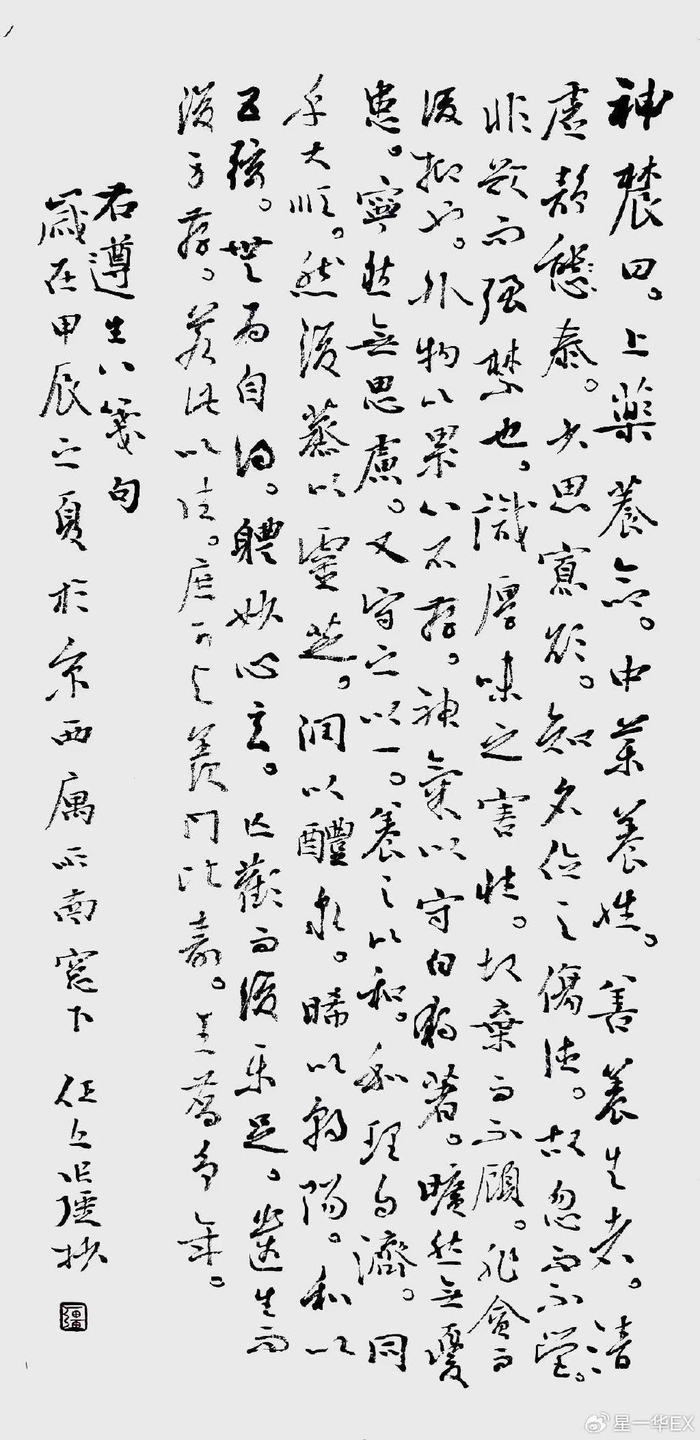 神農曰。上藥養命。中藥養性。善養生者。清
虛靜態泰。少思寡欲。知名位之傷德。故忽而不營。
非欲而强禁也。識厚味之害性。故棄而不顧。非貪而
後抑也。外物以累心不存。神氣以守白獨著。曠然無憂
患。寧然無思慮。又守之以一。養之以和。和理日濟。同
乎大順。然後蒸以靈芝。潤以醴泉。晞以朝陽。和以
五弦。無為自得。體妙心玄。忘歡而後樂足。遺生而
後身存。若此以往。庶可與羨門比壽。王喬争年。
右遵生八箋句
歲在甲辰之夏於京西寓所南窗下 任疆抄
疆
星一华EX